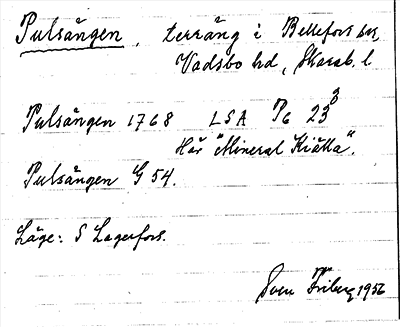 Pulsängen, terräng i Bellefors sn,
Vadsbo hd, Skarab. l
Pulsängen 1768 LSA P6 23³
Här "Mineral Kiälla".
Pulsängen G 54.
Läge: S Lagerfors.
Sven Friberg 1956